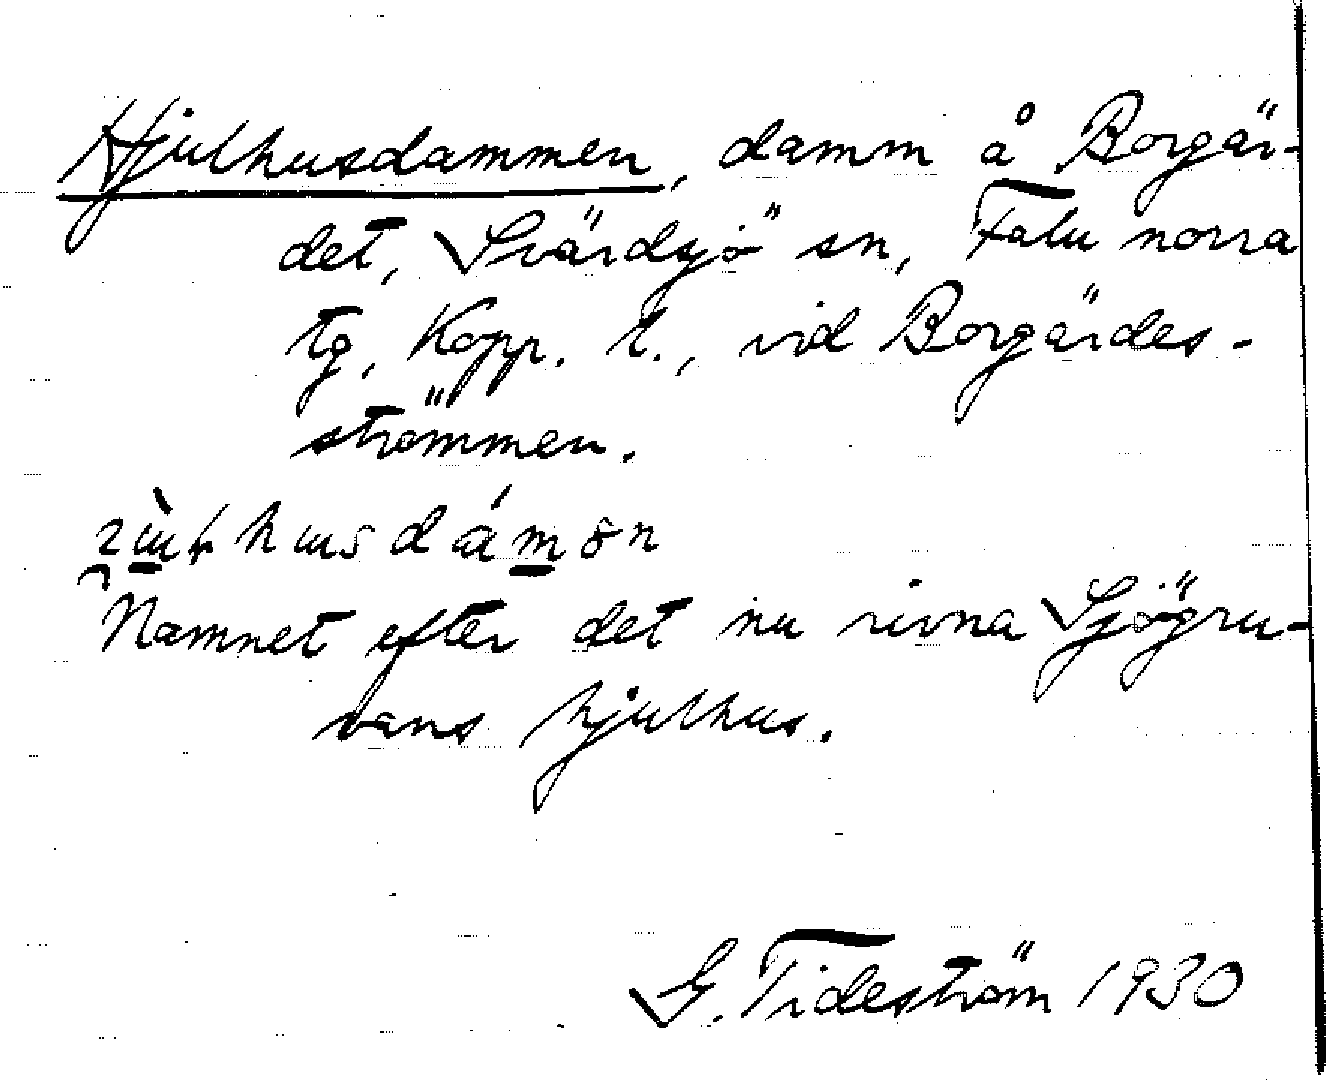 Hjulhusdammen, damm å Borgär-
det, Svärdsjö sn, Falu norra
tg, Kopp. l., vid Borgärdes-
strömmen.
Namnet efter det nu rivna Sjögru-
vans hjulhus.
G. Tideström 1930